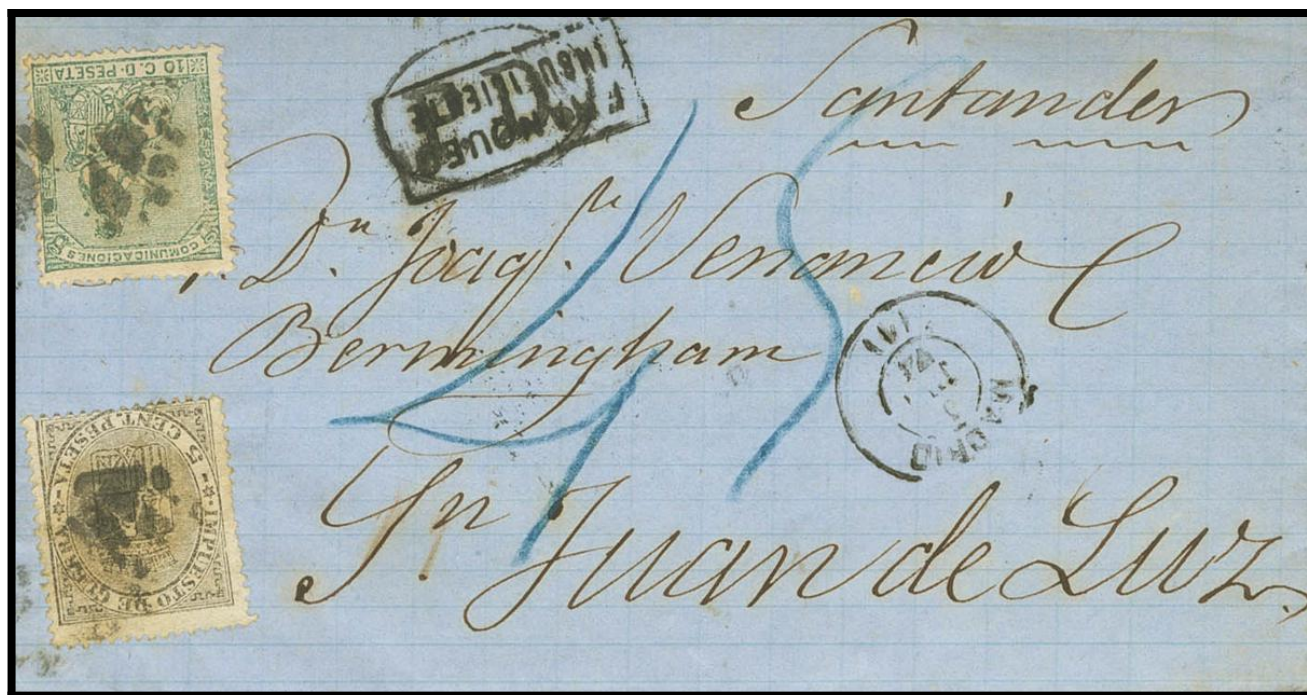 10 C. D. PESETA
ESPAÑA
COMUNICACIONES
FRANQUEO
INSUFICIENTE
Santander
Dn. Joaqn. Venancio
Bermingham
45
MADRID
74
Sn. Juan de Luz.
5 CENT. PESETA
IMPUESTO DE GUERRA